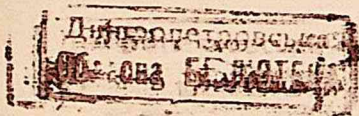 Дніпропетровська
Обласна БІБЛІОТЕКА